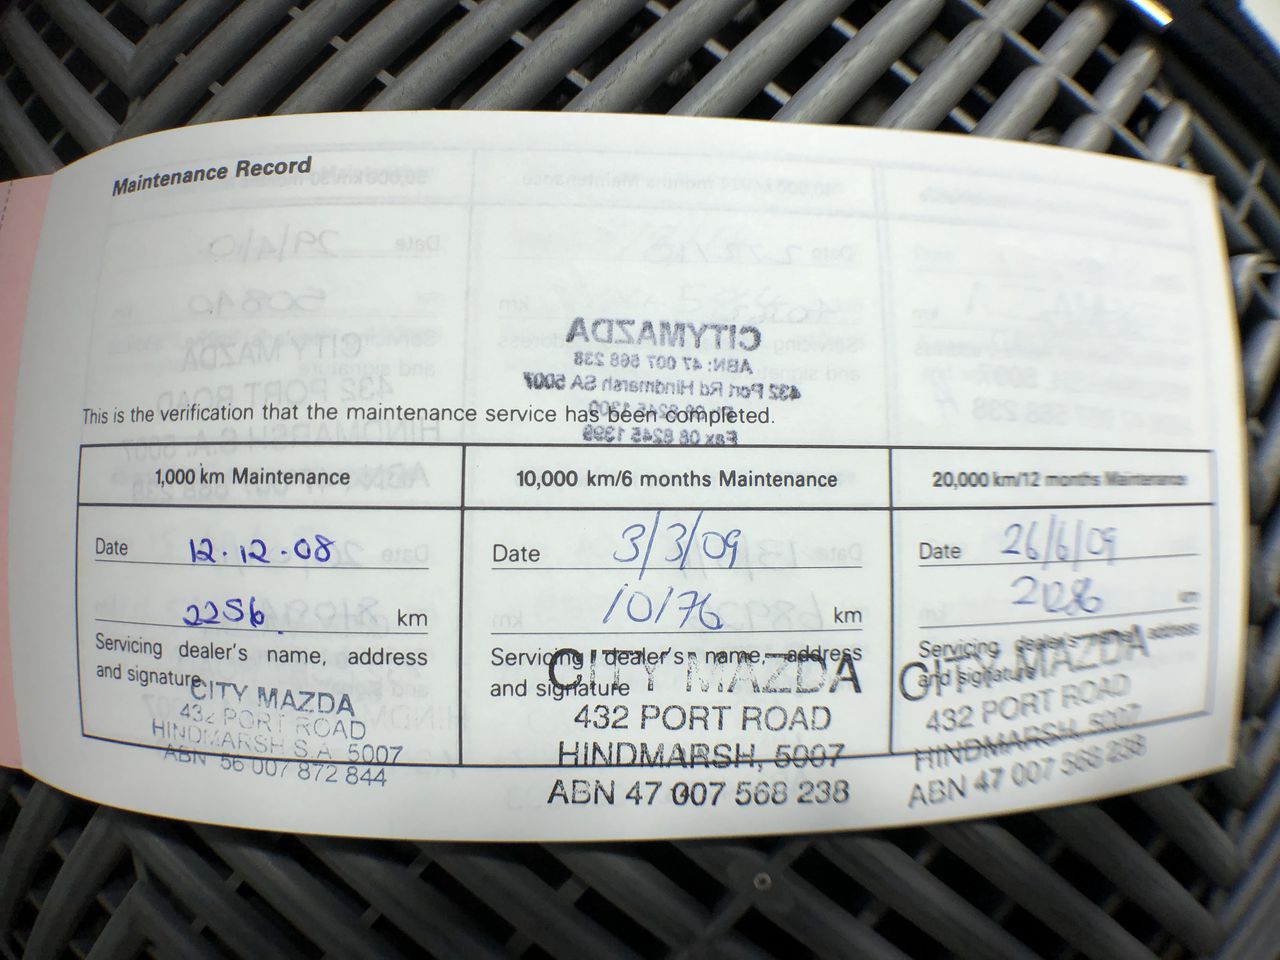 Maintenance Record
This is the verification that the maintenance service has been completed.
1,000 km Maintenance
Date 12.12.08
2256 km
Servicing dealer's name, address
and signature
CITY MAZDA
432 PORT ROAD
HINDMARSH S.A. 5007
ABN 56 007 872 844
10,000 km/6 months Maintenance
Date 3/3/09
10176 km
Servicing dealer's name, address
and signature
CITY MAZDA
432 PORT ROAD
HINDMARSH, 5007
ABN 47 007 568 238
20,000 km/12 months Maintenance
Date 26/6/09
km
Servicing dealer's name, address
and signature
CITY MAZDA
432 PORT ROAD
HINDMARSH, 5007
ABN 47 007 568 238
CITYMAZDA
ABN: 47 007 568 238
432 Port Rd Hindmarsh SA 5007
Fax 08 8245 1399